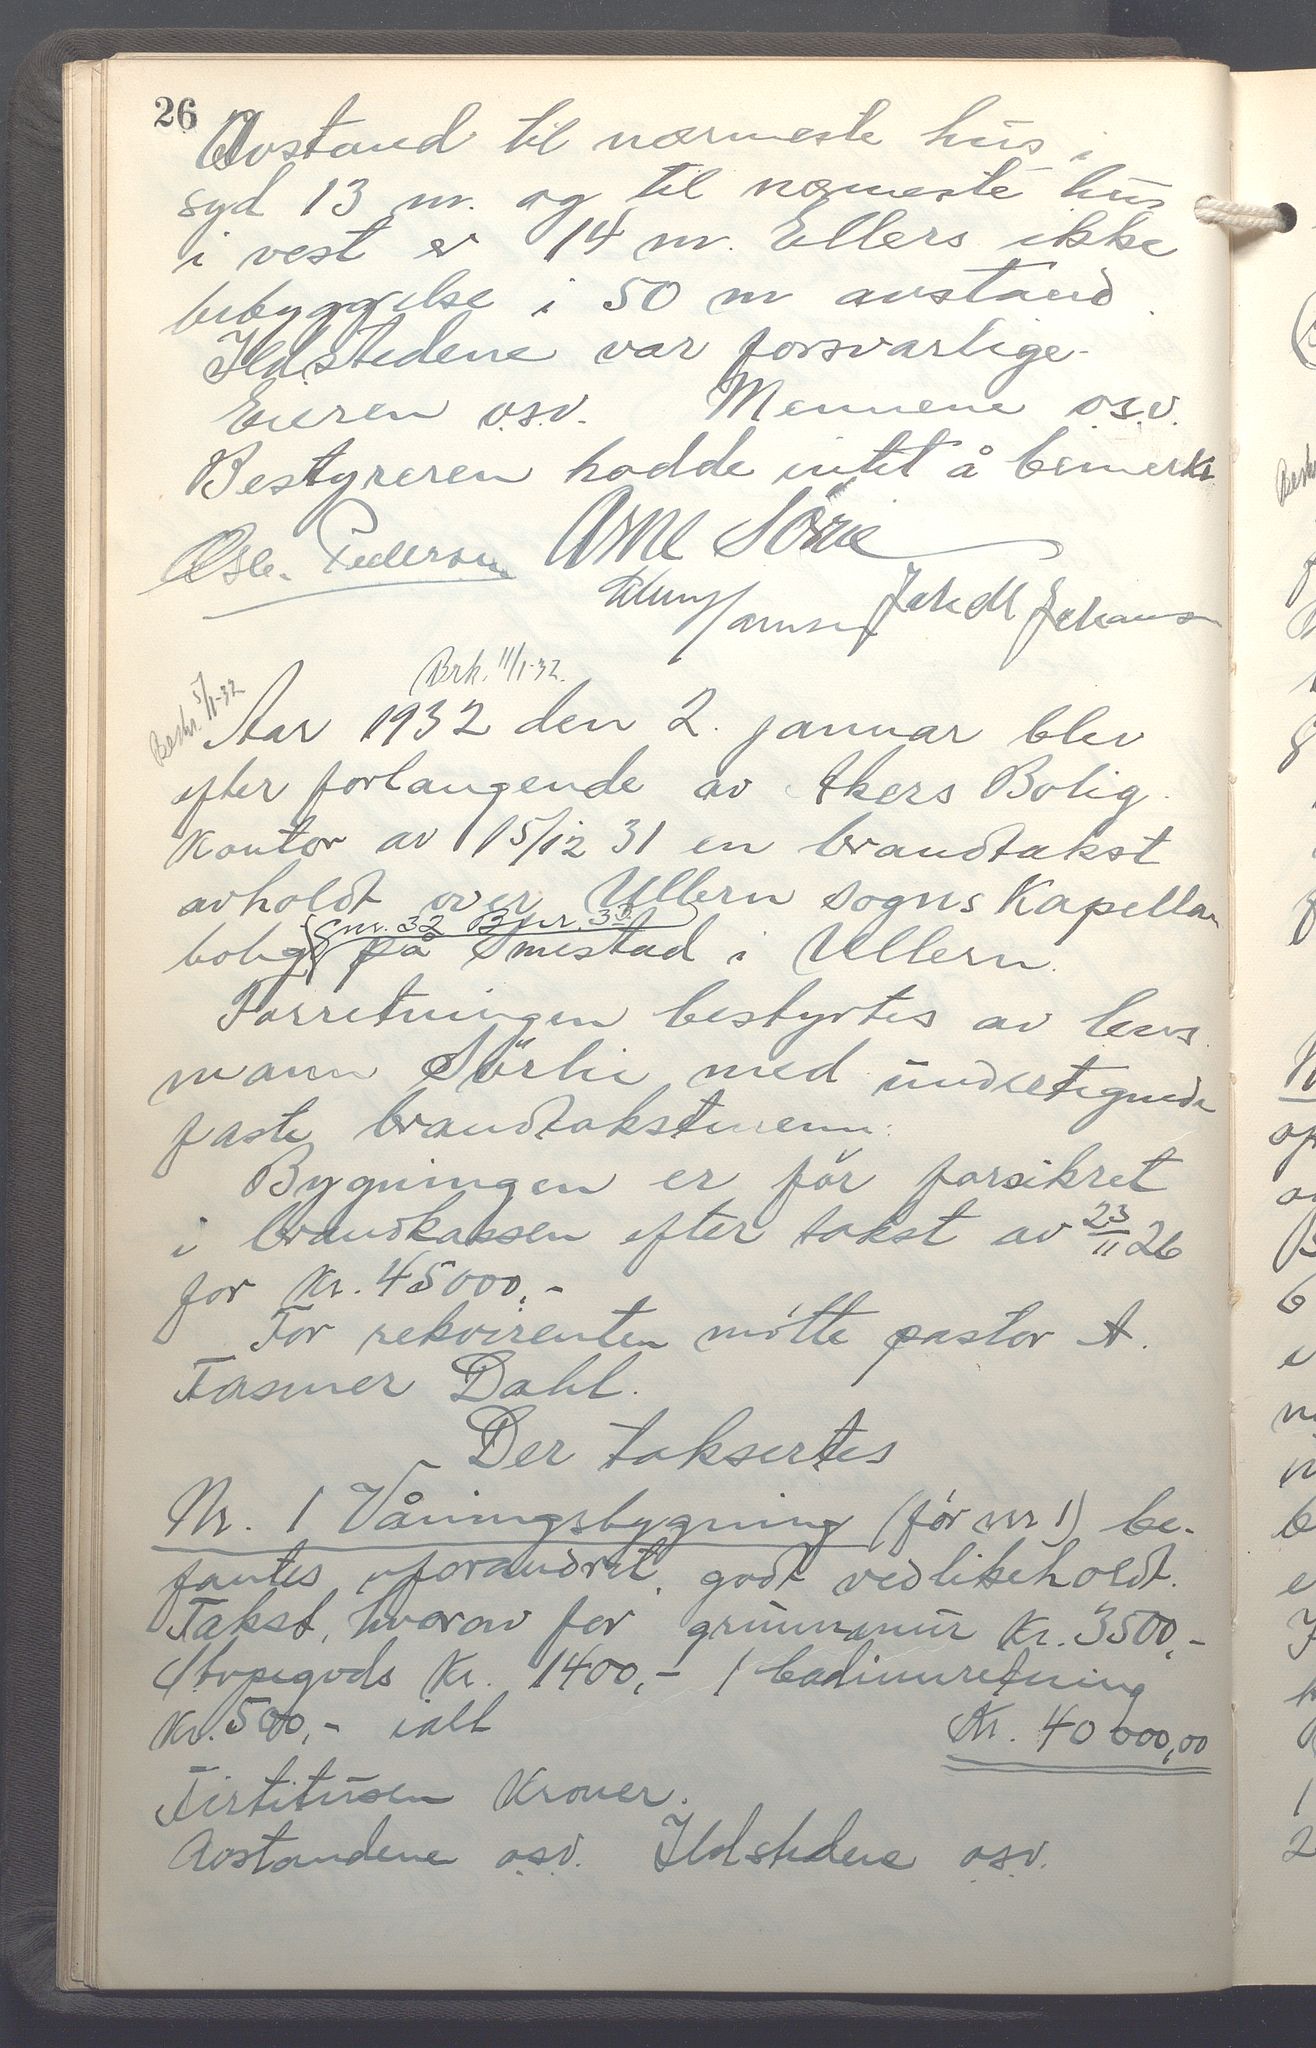 26
Avstand til nærmeste hus i
syd 13 m. og til nærmeste hus
i vest er 14 m. Ellers ikke
bebyggelse i 50 m avstand.
Ildstedene var forsvarlige.
Eieren osv. Mennene osv.
Bestyreren hadde intet å bemerke
Osc. Pedersen Arne Sörlie
Jakob Johansen
Brk. 11/1-32.
Beskr. 5/1-32
Aar 1932 den 2. januar blev
efter forlangende av Akers Bolig-
kontor av 15/12 31 en brandtakst
avholdt over Ullern sogns Kapellan
Gnr. 32 Bnr. 33
bolig på Smestad i Ullern.
Forretningen bestyrtes av lens-
mann Sörlie med undertegnede
faste brandtakstmenn.
Bygningen er för forsikret
i brandkassen efter takst av 23/11 26
for Kr. 45000,-
For rekvirenten mötte pastor A.
Fasmer Dahl.
Der taksertes
Nr. 1 Våningsbygning (för nr 1) be-
fantes uforandret, godt vedlikeholdt.
Takst, hvorav for grunnmur Kr. 3500,-
Stöpegods Kr. 1400,- 1 badinnretning
Kr. 500,- ialt Kr. 40 000,00
Firtitusen Kroner.
Avstandene osv. Ildstedene osv.